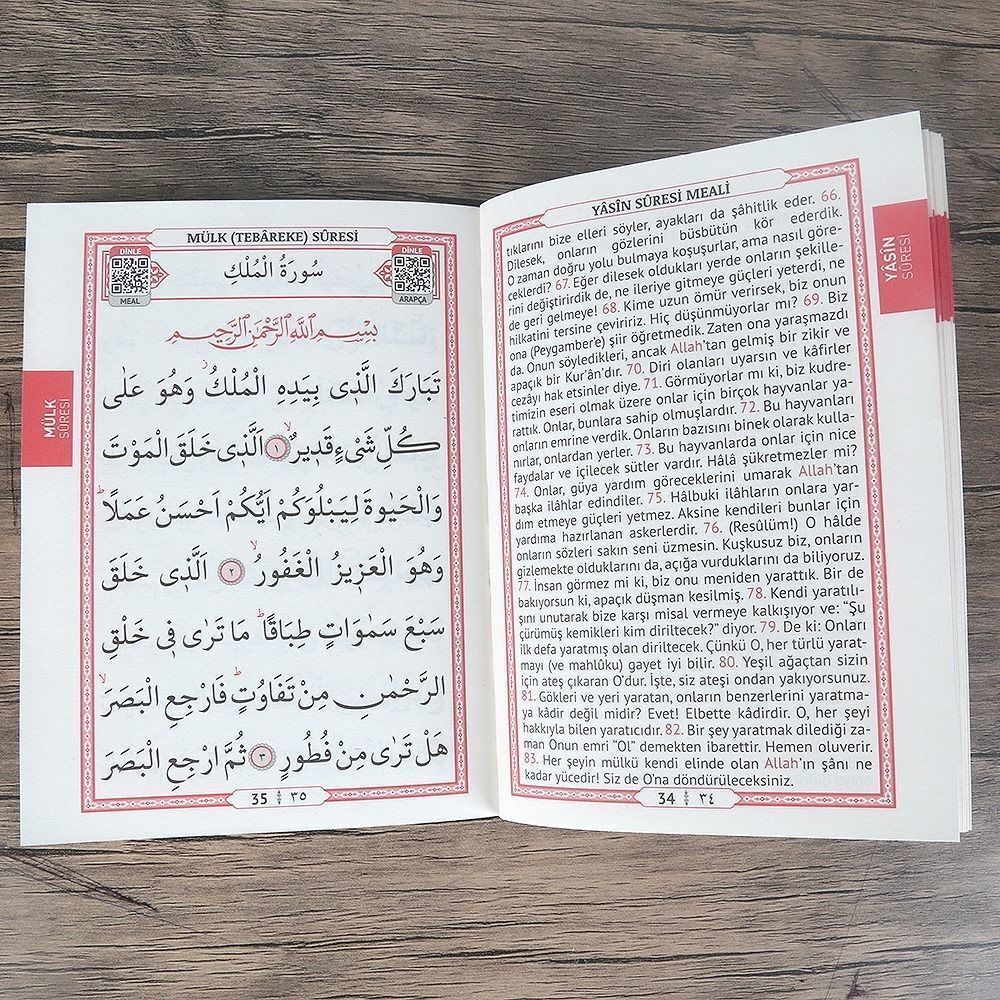 YÂSÎN SÛRESİ MEALİ
tıklarını bize elleri söyler, ayakları da şâhitlik eder. 66.
Dilesek, onların gözlerini büsbütün kör ederdik.
O zaman doğru yolu bulmaya koşuşurlar, ama nasıl göre-
ceklerdi? 67. Eğer dilesek oldukları yerde onların şekille-
rini değiştirirdik de, ne ileriye gitmeye güçleri yeterdi, ne
de geri gelmeye! 68. Kime uzun ömür verirsek, biz onun
hilkatini tersine çeviririz. Hiç düşünmüyorlar mı? 69. Biz
ona (Peygamber'e) şiir öğretmedik. Zaten ona yaraşmazdı
da. Onun söyledikleri, ancak Allah'tan gelmiş bir zikir ve
apaçık bir Kur'ân'dır. 70. Diri olanları uyarsın ve kâfirler
cezâyı hak etsinler diye. 71. Görmüyorlar mı ki, biz kudre-
timizin eseri olmak üzere onlar için birçok hayvanlar ya-
rattık. Onlar, bunlara sahip olmuşlardır. 72. Bu hayvanları
onların emrine verdik. Onların bazısını binek olarak kulla-
nırlar, onlardan yerler. 73. Bu hayvanlarda onlar için nice
faydalar ve içilecek sütler vardır. Hâlâ şükretmezler mi?
74. Onlar, güya yardım göreceklerini umarak Allah'tan
başka ilâhlar edindiler. 75. Hâlbuki ilâhların onlara yar-
dım etmeye güçleri yetmez. Aksine kendileri bunlar için
yardıma hazırlanan askerlerdir. 76. (Resûlüm!) O hâlde
onların sözleri sakın seni üzmesin. Kuşkusuz biz, onların
gizlemekte olduklarını da, açığa vurduklarını da biliyoruz.
77. İnsan görmez mi ki, biz onu meniden yarattık. Bir de
bakıyorsun ki, apaçık düşman kesilmiş. 78. Kendi yaratılı-
şını unutarak bize karşı misal vermeye kalkışıyor ve: "Şu
çürümüş kemikleri kim diriltecek?" diyor. 79. De ki: Onları
ilk defa yaratmış olan diriltecek. Çünkü O, her türlü yarat-
mayı (ve mahlûku) gayet iyi bilir. 80. Yeşil ağaçtan sizin
için ateş çıkaran O'dur. İşte, siz ateşi ondan yakıyorsunuz.
81. Gökleri ve yeri yaratan, onların benzerlerini yaratma-
ya kâdir değil midir? Evet! Elbette kâdirdir. O, her şeyi
hakkıyla bilen yaratıcıdır. 82. Bir şey yaratmak dilediği za-
man Onun emri "OL" demekten ibarettir. Hemen oluverir.
83. Her şeyin mülkü kendi elinde olan Allah'ın şânı ne
kadar yücedir! Siz de O'na döndürüleceksiniz.
34 ٣٤
YÂSÎN
SÛRESİ
MÜLK (TEBÂREKE) SÛRESİ
DİNLE
MEAL
سُورَةُ الْمُلْكِ
DİNLE
ARAPÇA
بِسْمِ اللّٰهِ الرَّحْمٰنِ الرَّح۪يمِ
تَبَارَكَ الَّذ۪ي بِيَدِهِ الْمُلْكُۘ وَهُوَ عَلٰى
كُلِّ شَيْءٍ قَد۪يرٌۙ ﴿١﴾ اَلَّذ۪ي خَلَقَ الْمَوْتَ
وَالْحَيٰوةَ لِيَبْلُوَكُمْ اَيُّكُمْ اَحْسَنُ عَمَلًاۜ
وَهُوَ الْعَز۪يزُ الْغَفُورُۙ ﴿٢﴾ اَلَّذ۪ي خَلَقَ
سَبْعَ سَمٰوَاتٍ طِبَاقًاۜ مَا تَرٰى ف۪ي خَلْقِ
الرَّحْمٰنِ مِنْ تَفَاوُتٍۜ فَارْجِعِ الْبَصَرَۙ
هَلْ تَرٰى مِنْ فُطُورٍ ﴿٣﴾ ثُمَّ ارْجِعِ الْبَصَرَ
35 ٣٥
MÜLK
SÛRESİ